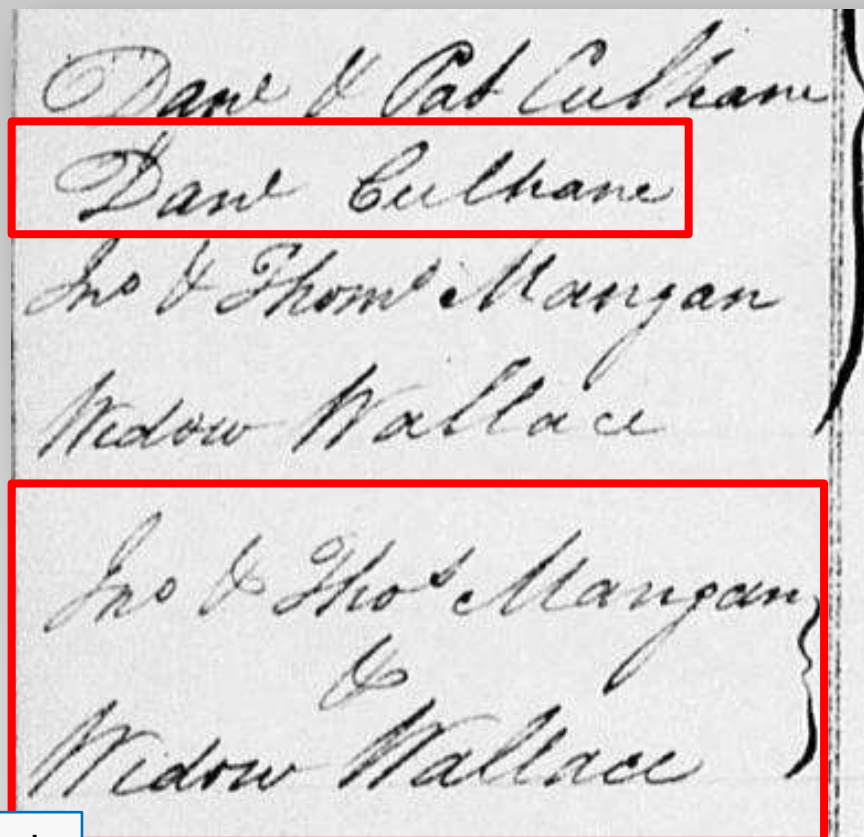 Danl & Pat Culhane
Danl Culhane
Jno & Thoms Mangan
Widow Wallace
Jno & Thos Mangan
&
Widow Wallace